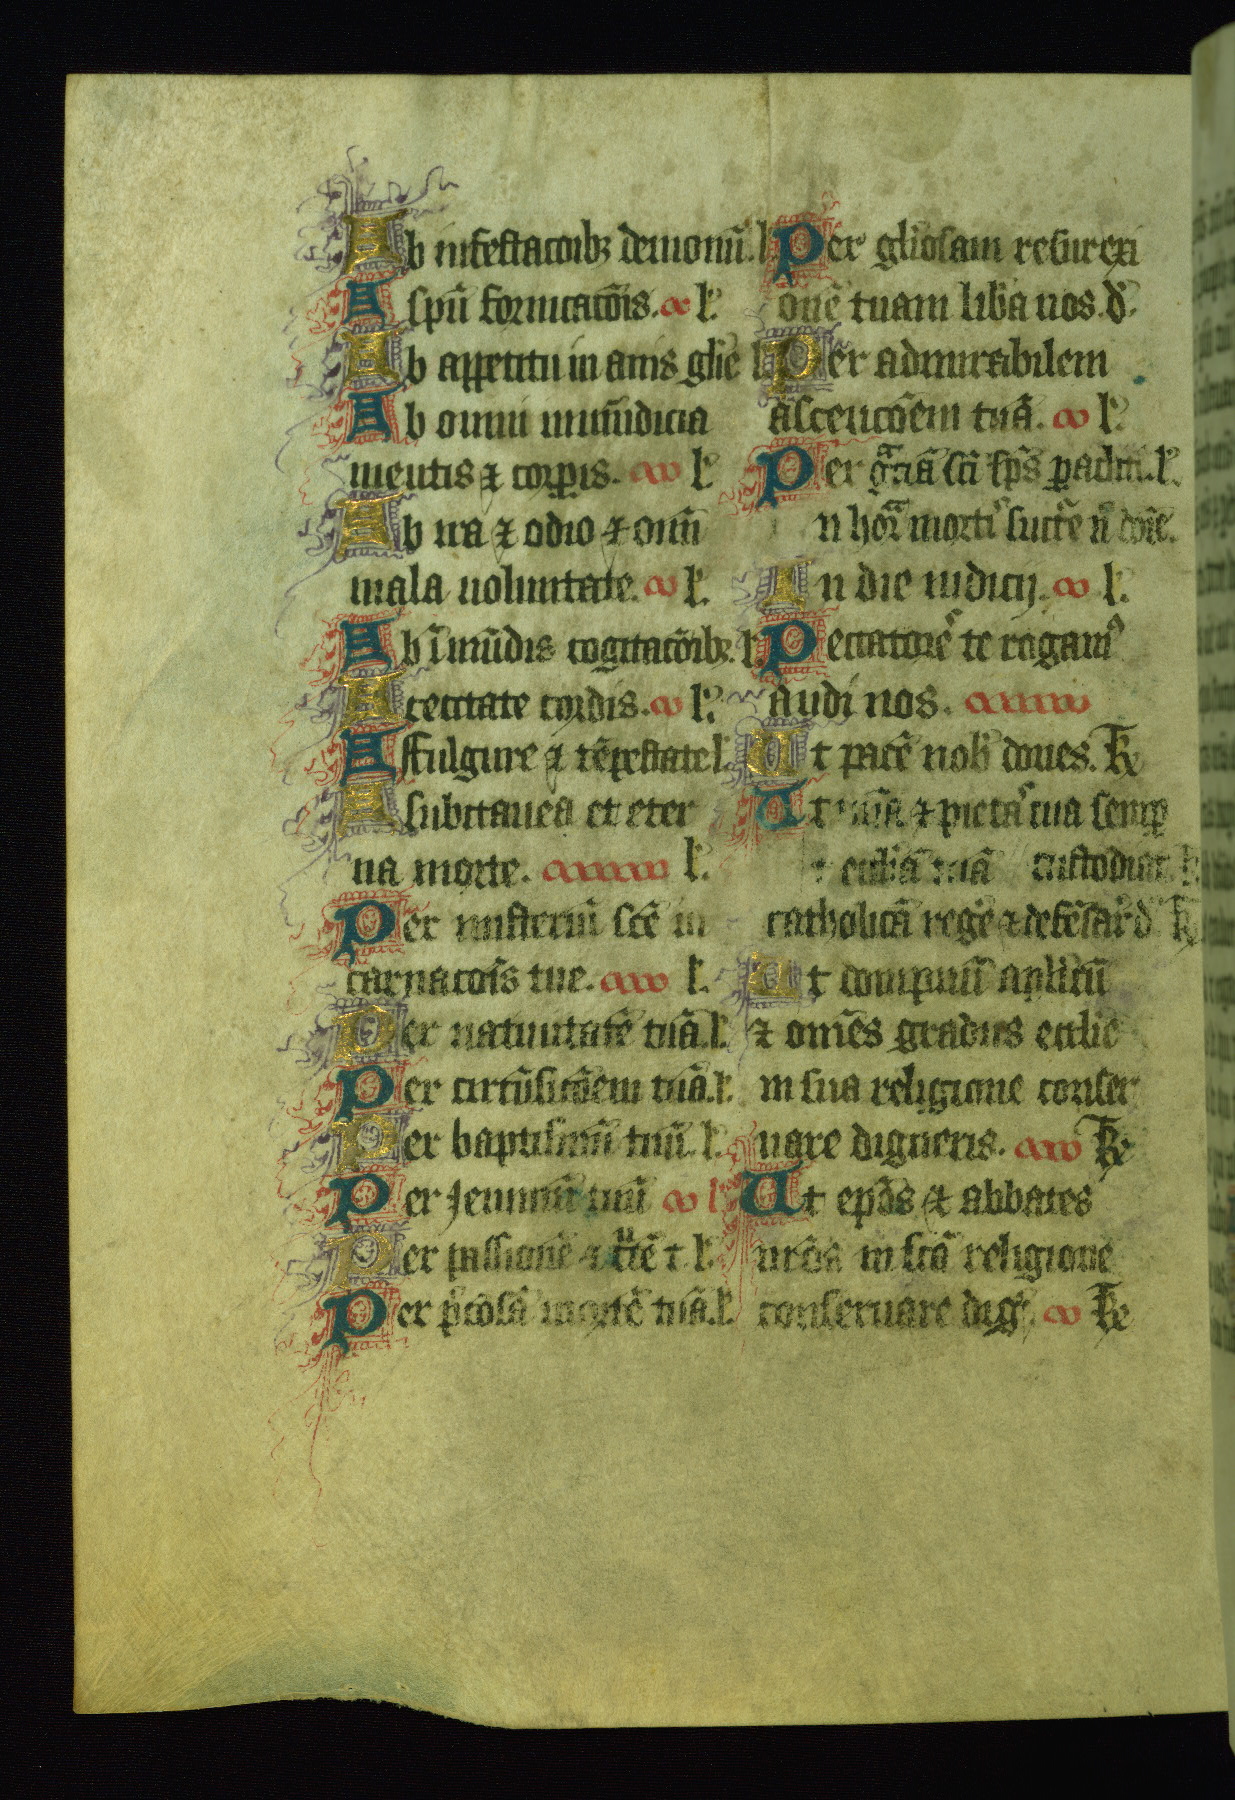 Ab infestacoibꝫ demonū. l
A spū fornicacōis. l'
Ab appetitu in anis glīe l
Ab omni inmūdicia
mentis ⁊ corꝑis. l'
Ab ira ⁊ odio ⁊ omī
mala uoluntate. l'.
Ab īmūdis cogitacōibꝫ. l'.
A cecitate cordis. l'.
A ffulgure ⁊ tēpestate l'
A subitanea et eter
na morte. l'.
Per misteriū scē in
carnacōis tue. l'.
Per natiuitatē tuā. l'.
Per circūsicōem tuā. l'.
Per baptismū tuū. l'.
Per Jeiuniū tuū l'
Per passionē ⁊ c̄cē t. l'.
Per p̄cōsā mortē tuā. l'.
Per gl̄iosam resurexi
onē tuam lib̄a nos. d'.
Per admirabilem
ascencōem tuā. l'.
Per gᵃciā sc̄i sp̄s ꝑacliti. l'.
n horᵃ mortis succ̄e n dn̄e.
In die iudicij. l'.
Peccatores te rogamꝰ
audi nos.
Ut pacē nob̄ dones. K
Ut mīa ⁊ pietas tua semꝑ
eccliā tuā custodiat. K
catholicā regē ⁊ defēsar d' K
Ut dompnū aplicū
⁊ omēs gradus ecclie
in sua religione conser
uare digneris. K
Ut ep̄os ⁊ abbates
nr̄os in scā religione
conseruare dig' K